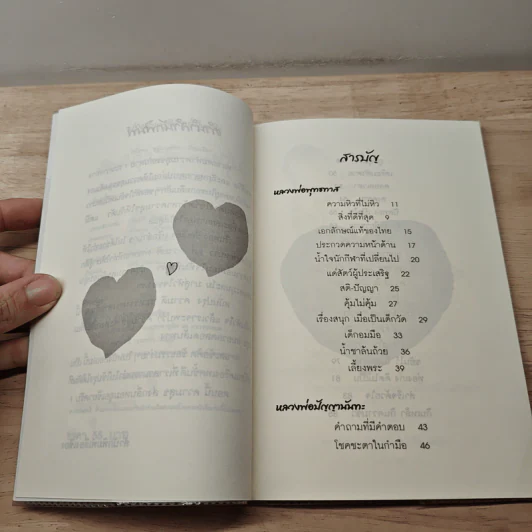 สารบัญ
หลวงพ่อพุทธทาส
ความหิวที่ไม่หิว 11
สิ่งที่ดีที่สุด 9
เอกลักษณ์แท้ของไทย 15
ประกวดความหน้าด้าน 17
น้ำใจนักกีฬาที่เปลี่ยนไป 20
แด่สัตว์ผู้ประเสริฐ 22
สติ-ปัญญา 25
คุ้มไม่คุ้ม 27
เรื่องสนุก เมื่อเป็นเด็กวัด 29
เด็กอมมือ 33
น้ำชาล้นถ้วย 36
เลี้ยงพระ 39
หลวงพ่อปัญญานันทะ
คำถามที่มีคำตอบ 43
โชคชะตาในกำมือ 46